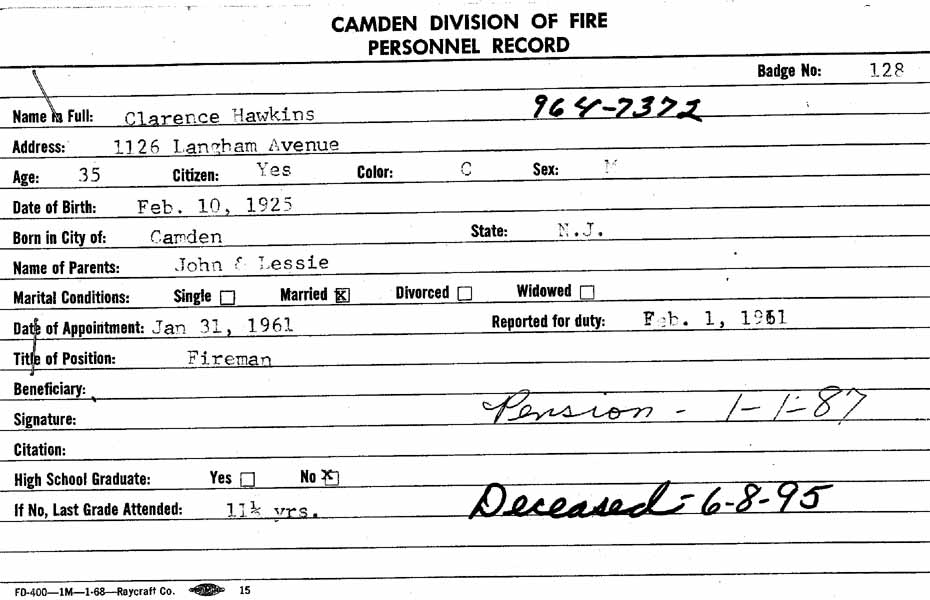 CAMDEN DIVISION OF FIRE
PERSONNEL RECORD
Badge No: 128
Name in Full: Clarence Hawkins 964-7372
Address: 1126 Langham Avenue
Age: 35 Citizen: Yes Color: C Sex: M
Date of Birth: Feb. 10, 1925
Born in City of: Camden State: N.J.
Name of Parents: John & Lessie
Marital Conditions: Single ☐ Married ☒ Divorced ☐ Widowed ☐
Date of Appointment: Jan 31, 1961 Reported for duty: Feb. 1, 1961
Title of Position: Fireman
Beneficiary:
Signature: Pension - 1-1-87
Citation:
High School Graduate: Yes ☐ No ☒
If No, Last Grade Attended: 11½ yrs. Deceased - 6-8-95
FD-400—1M—1-68—Raycraft Co. 15